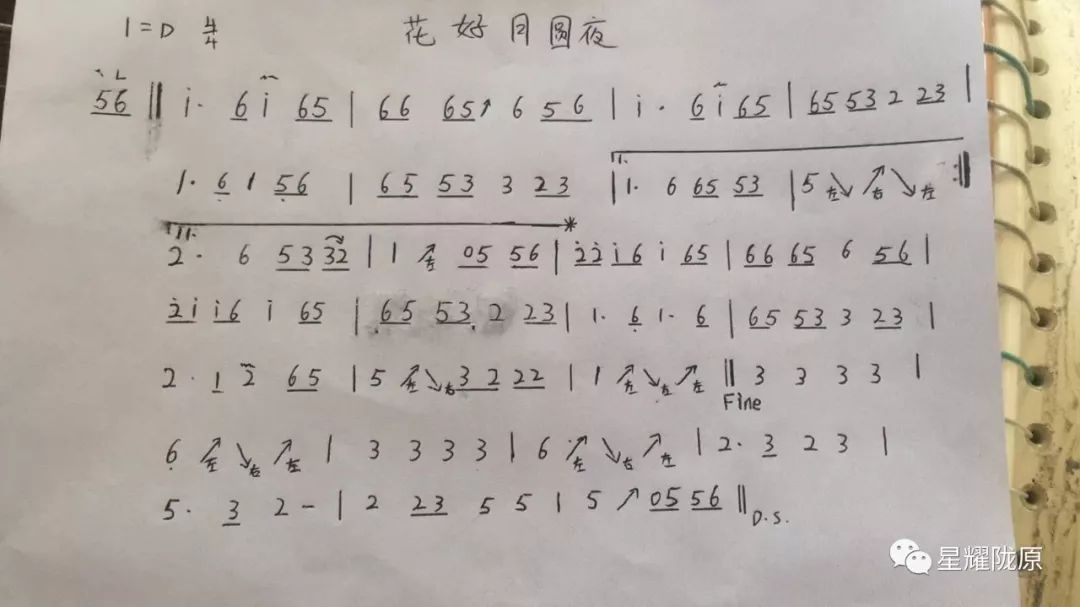 1=D 4/4 花好月圆夜
56 ‖ i· 6 i 65 | 66 65↗ 6 56 | i· 6 i 65 | 65 53 2 23 |
1· 6 1 56 | 65 53 3 23 | I. 1· 6 65 53 | 5 左↘ ↗右 ↘左 :‖
II. 2· 6 53 32 | 1 ↗左 05 56 | 22 i6 i 65 | 66 65 6 56 |
2i i6 i 65 | 65 53 2 23 | 1· 6 1· 6 | 65 53 3 23 |
2· 1 2 65 | 5 ↗左 ↘右 32 22 | 1 ↗左 ↘左 ↗左 ‖ 3 3 3 3 |
Fine
6 ↗左 ↘右 ↗左 | 3 3 3 3 | 6 ↗左 ↘右 ↗左 | 2· 3 2 3 |
5· 3 2 - | 2 23 5 5 | 5 ↗ 05 56 ‖ D.S.
星耀陇原